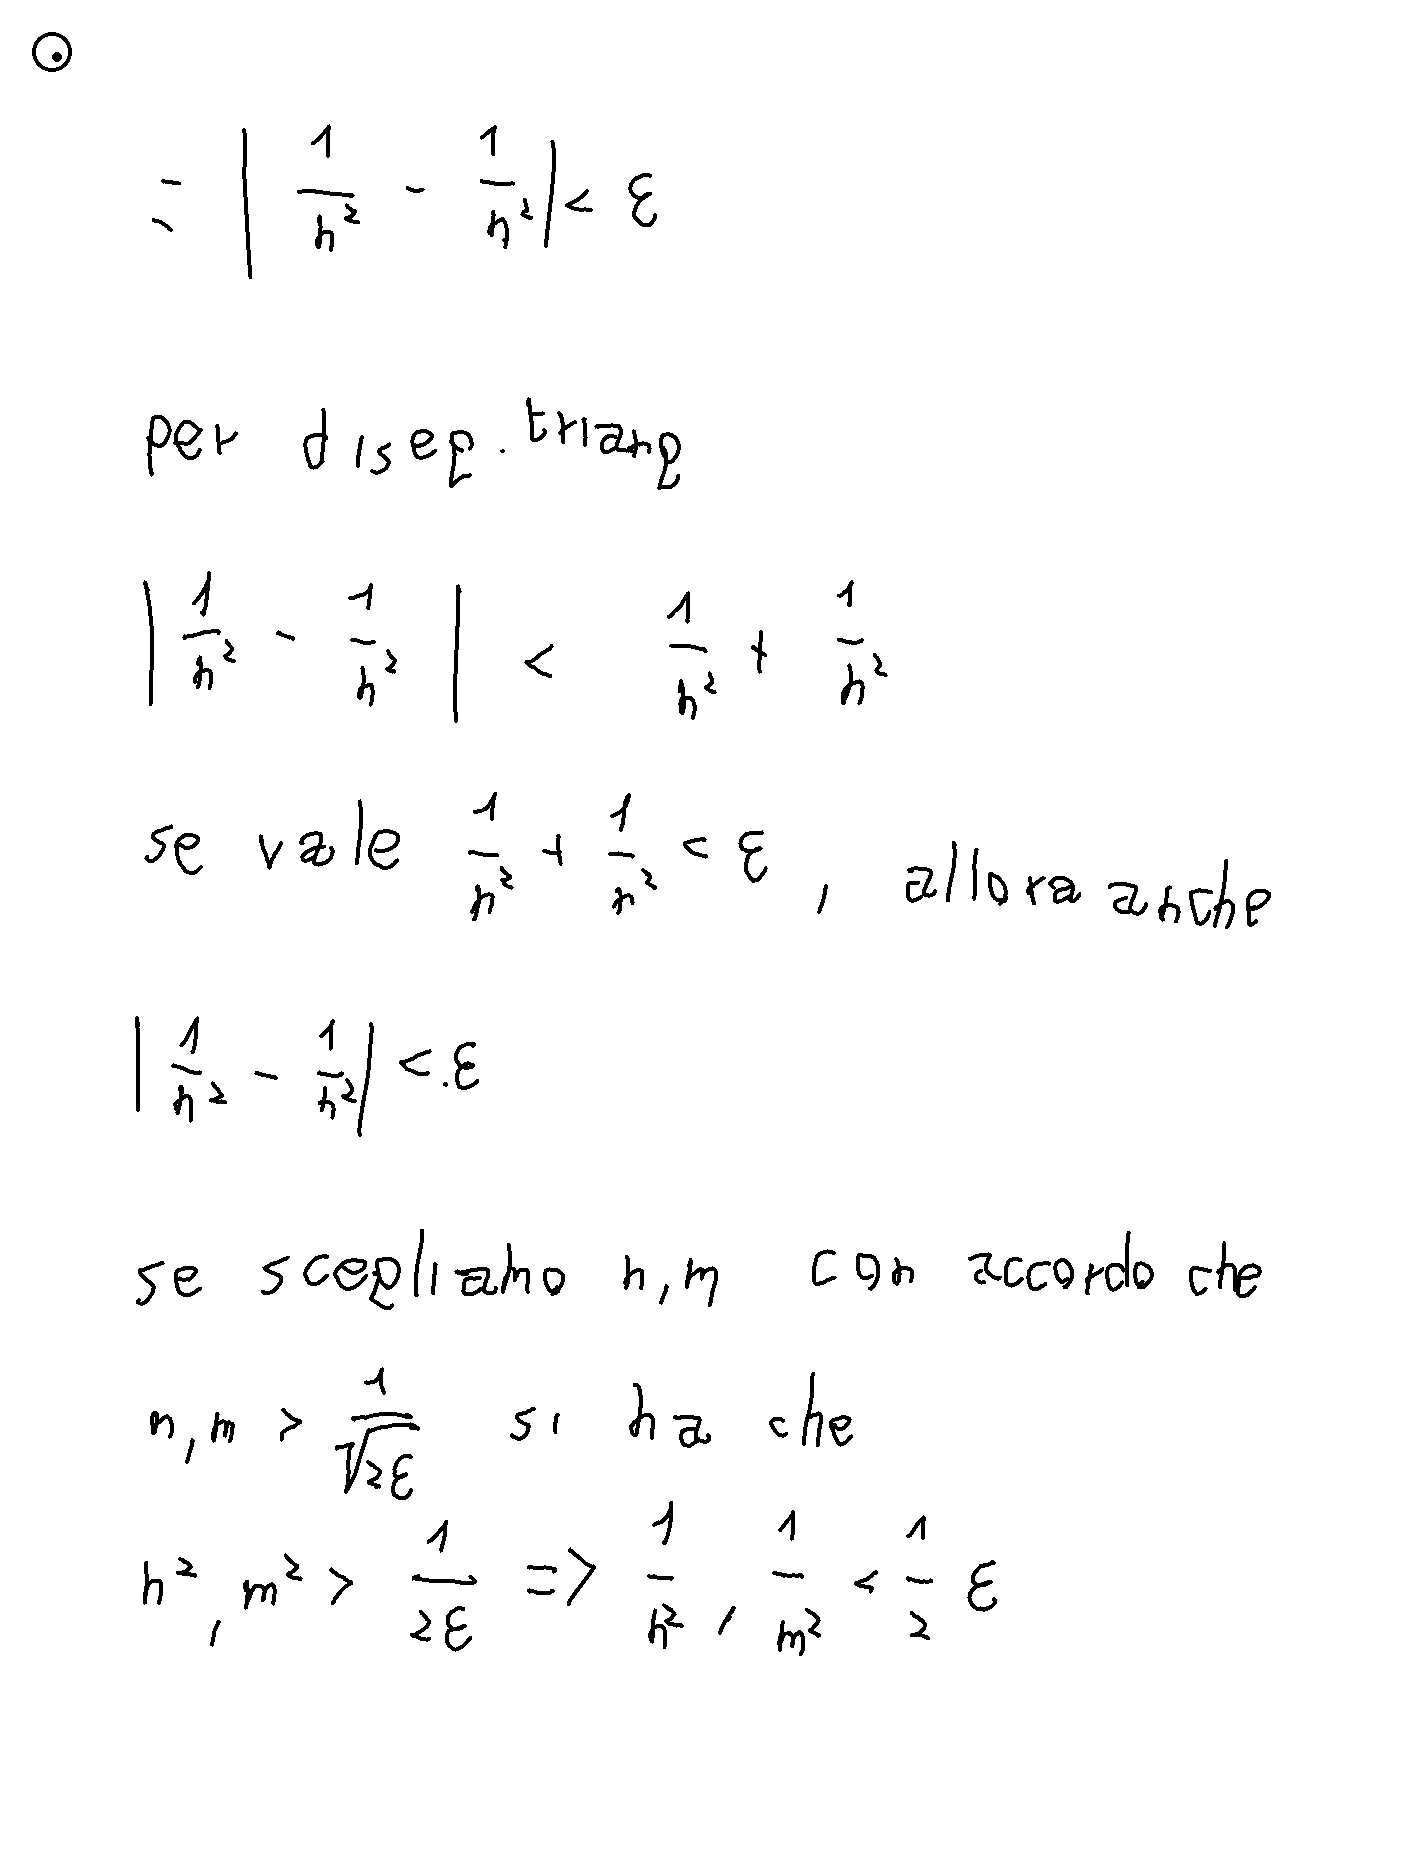 = | 1/n² - 1/n² | < ε
per diseg. triang
| 1/n² - 1/n² | < 1/n² + 1/n²
se vale 1/n² + 1/n² < ε , allora anche
| 1/n² - 1/n² | < . ε
se scegliamo n, m con accordo che
n, m > 1/√2ε si ha che
n², m² > 1/2ε => 1/n² , 1/m² < 1/2 ε